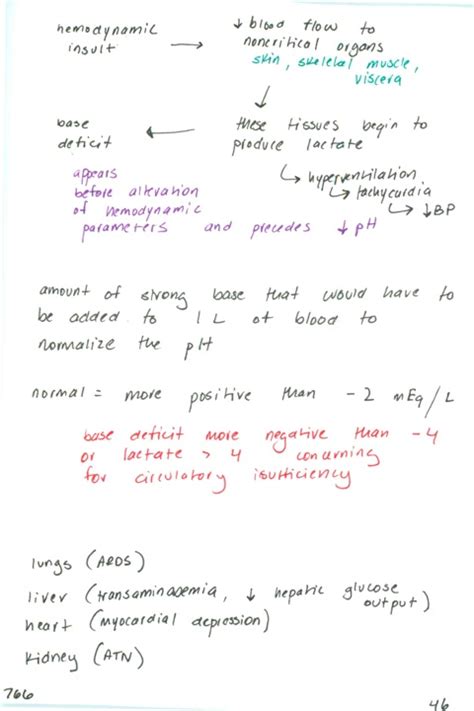 hemodynamic insult → ↓ blood flow to
noncritical organs
skin, skeletal muscle,
viscera
↓
base deficit ← these tissues begin to
produce lactate
↳ hyperventilation
↳ tachycardia
↳ ↓BP
appears
before alteration
of hemodynamic
parameters and precedes ↓ pH
amount of strong base that would have to
be added to 1 L of blood to
normalize the pH
normal = more positive than -2 mEq/L
base deficit more negative than -4
or lactate > 4 concerning
for circulatory
lungs (ARDS)
liver (transaminasemia, ↓ hepatic glucose
output)
heart (myocardial depression)
kidney (ATN)
766
46